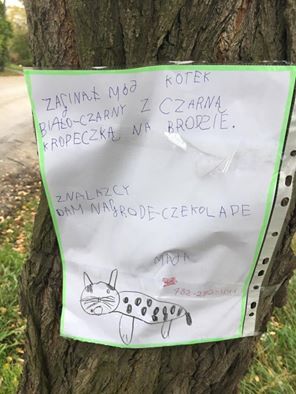 ZAGINĄŁ MÓJ KOTEK
BIAŁO-CZARNY Z CZARNĄ
KROPECZKĄ NA BRODZIE.
ZNALAZCY
DAM NAGRODE-CZEKOLADE
MAJA